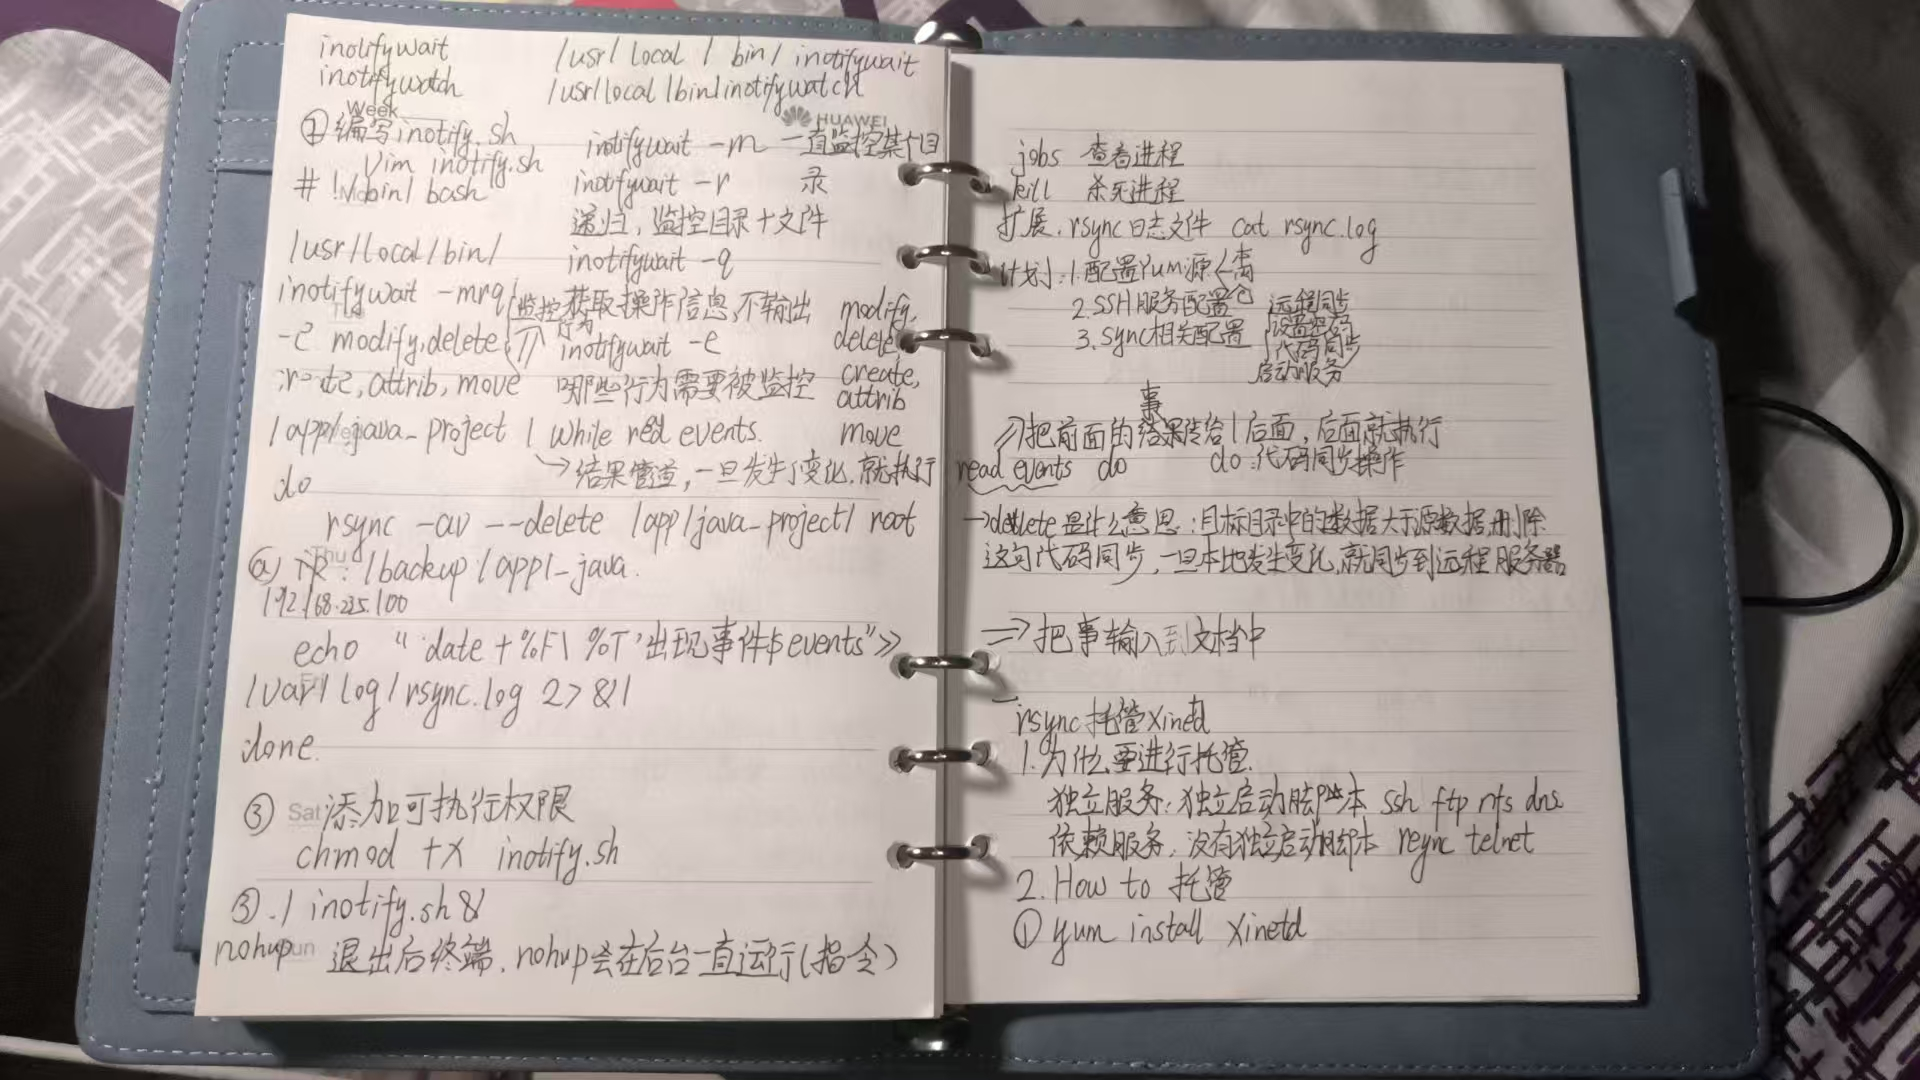 inotifywait /usr/local/bin/inotifywait
inotifywatch /usr/local/bin/inotifywatch
Week
HUAWEI
① 编写inotify.sh
Vim inotify.sh
#!/bin/bash
/usr/local/bin/
inotifywait -mrq
-e modify,delete
,attrib,move
/app/java_project | while red events.
do
rsync -av --delete /app/java_project/ root
Thu
@ : /backup/app/_java.
192.168.235.100
echo "date +%F\ %T'出现事件$events">>
/var/log/rsync.log 2>&1
done.
inotifywait -m 一直监控某个目
inotifywait -r 录
递归，监控目录+文件
inotifywait -q
监控 获取操作信息,不输出
行为
inotifywait -e
哪些行为需要被监控
modify,
delete
create,
attrib
move
→结果管道，一旦发生了变化.就执行
③ Sat 添加可执行权限
chmod +x inotify.sh
③ ./ inotify.sh &
nohup 退出后终端.nohup会在后台一直运行(指令)
jobs 查看进程
kill 杀死进程
扩展.rsync日志文件 cat rsync.log
计划:1.配置Yum源
2.SSH服务配置
3.sync相关配置
远程同步
代码同步
启动服务
事
把前面的结果传给|后面，后面就执行
read events do do:代码同步操作
→delete是什么意思:目标目录中的数据大于源数据,删除
这句代码同步，一旦本地发生变化,就同步到远程服务器
=>把事输入到文档中
rsync托管Xined
1.为什么要进行托管.
独立服务:独立启动脚本 ssh ftp nfs dns
依赖服务:没有独立启动脚本 rsync telnet
2.How to 托管
① yum install xinetd